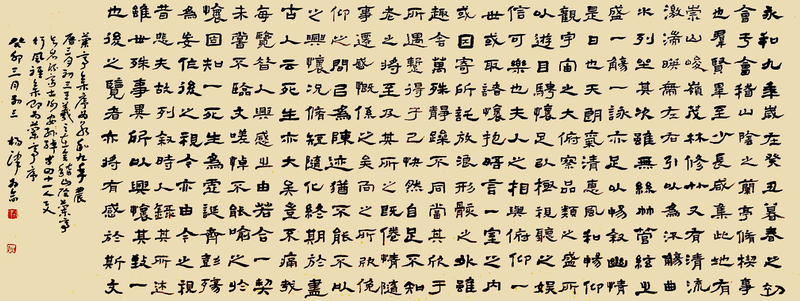 永和九年歲在癸丑暮春之初
會于會稽山陰之蘭亭脩禊事
也群賢畢至少長咸集此地有
崇山峻嶺茂林脩竹又有清流
激湍暎帶左右引以為流觴曲
水列坐其次雖無絲竹管絃之
盛一觴一詠亦足以暢敘幽情
是日也天朗氣清惠風和暢仰
觀宇宙之大俯察品類之盛所
以遊目騁懷足以極視聽之娛
信可樂也夫人之相與俯仰一
世或取諸懷抱晤言一室之內
或因寄所託放浪形骸之外雖
趣舍萬殊靜躁不同當其欣于
所遇暫得于己快然自足不知
老之將至及其所之既倦情隨
事遷感慨係之矣向之所欣俛
仰之間以為陳迹猶不能不以
之興懷況脩短隨化終期於盡
古人云死生亦大矣豈不痛哉
每覽昔人興感之由若合一契
未嘗不臨文嗟悼不能喻之於
懷固知一死生為虛誕齊彭殤
為妄作後之視今亦由今之視
昔悲夫故列敘時人錄其所述
雖世殊事異所以興懷其致一
也後之覽者亦將有感於斯文
蘭亭集序為永和九年農
曆三月初三王羲之在會稽山陰蘭亭
四十一人
即為蘭亭序
癸卯三月初三